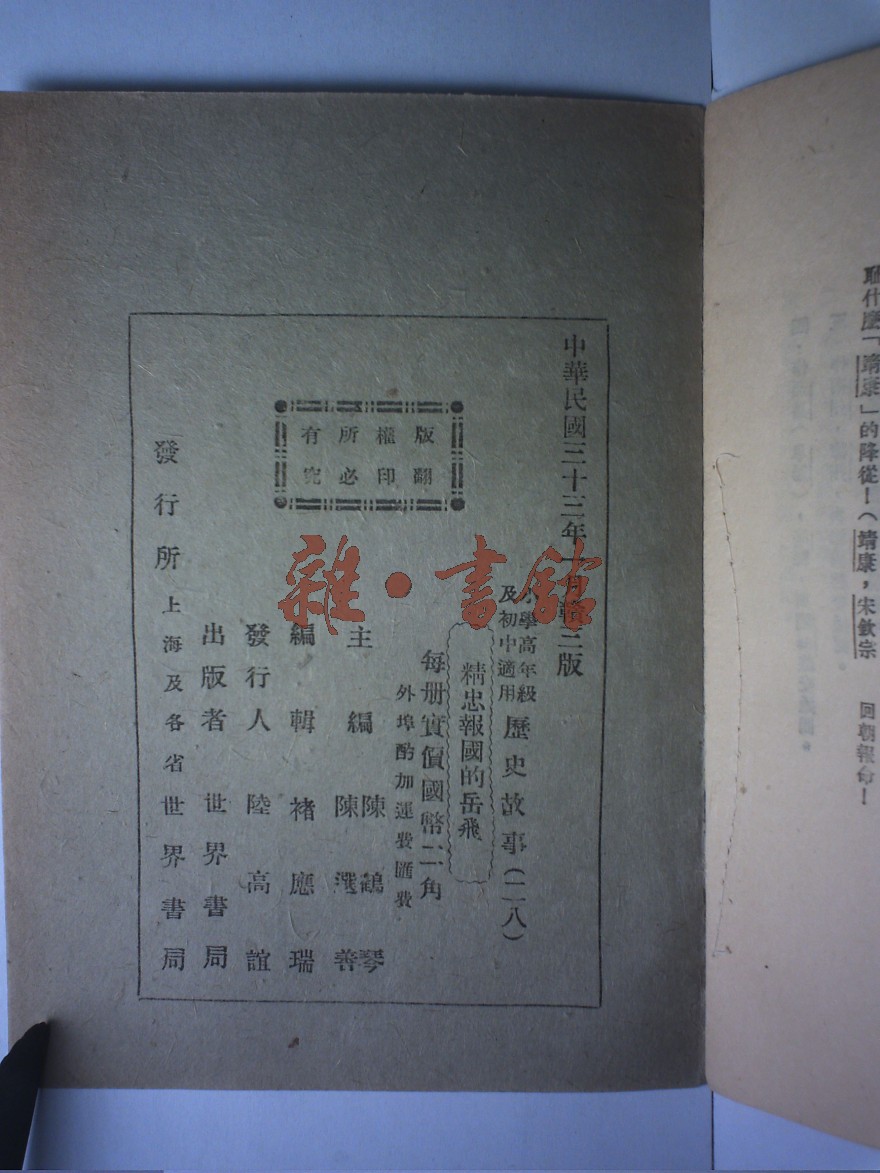 恥什麼「靖康」的降從！（靖康，宋欽宗
回朝報命！
中華民國三十三年一月贛三版
小學高年級
及初中適用
歷史故事（二八）
精忠報國的岳飛
每册實價國幣二角
外埠酌加運費匯費
版權所有
翻印必究
主編 陳鶴琴
陳選善
編輯 褚應瑞
發行人 陸高誼
出版者 世界書局
發行所 上海及各省世界書局
雜·書館